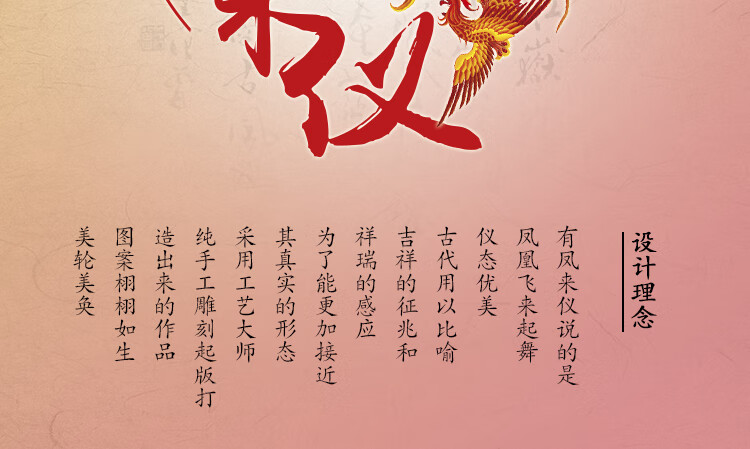 来仪
设计理念
有凤来仪说的是
凤凰飞来起舞
仪态优美
古代用以比喻
吉祥的征兆和
祥瑞的感应
为了能更加接近
其真实的形态
采用工艺大师
纯手工雕刻起版打
造出来的作品
图案栩栩如生
美轮美奂